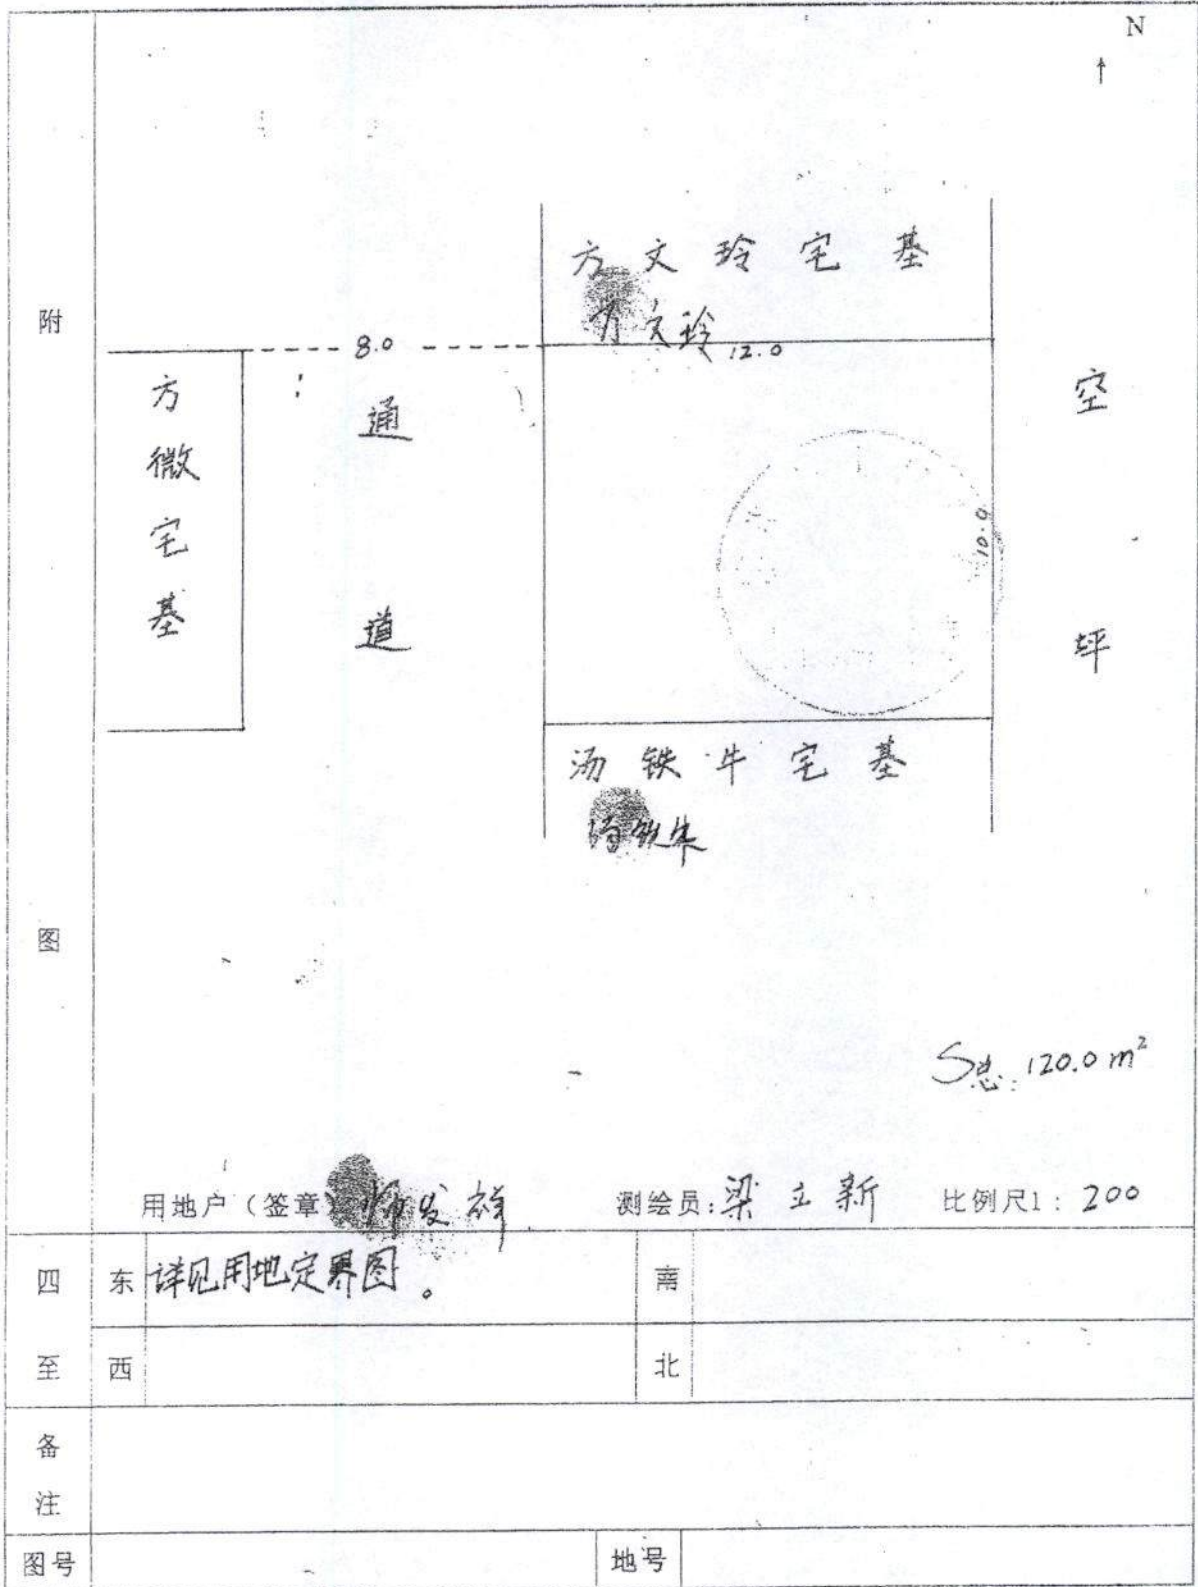 N
↑
附
图
方文玲宅基
方文玲
8.0
12.0
方微宅基
通道
10.0
空坪
汤铁牛宅基
汤铁牛
S总: 120.0 m²
用地户（签章） 发祥
测绘员: 梁立新
比例尺1: 200
四至
东 详见用地定界图。
南
西
北
备注
图号
地号